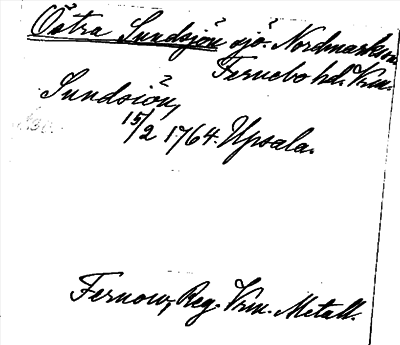 Östra Sundsjön sjö. Nordmarks sn
Fernebo hd. Vrm.
Sundsiön,
15/2 1764. Upsala.
Fernow, Reg. Vrm. Metall.